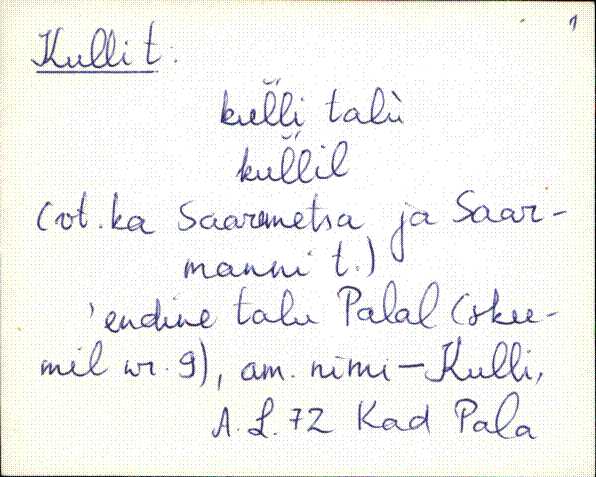 1
Kulli t.
kul̆l̆i talù
kul̆l̆il
(vt. ka Saaremetsa ja Saar-
manni t.)
'endine talu Palal (skee-
mil nr. 9), am. nimi – Kulli,
A. L. 72 Kad Pala